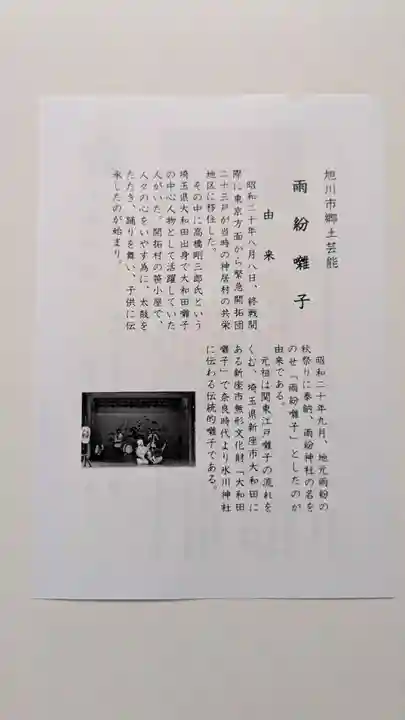 旭川市郷土芸能
雨紛囃子
由来
昭和二十年八月八日、終戦間
際に東京方面から緊急開拓団
二十三戸が当時の神居村の共栄
地区に移住した。
その中に高橋剛三郎氏という
埼玉県大和田出身で大和田囃子
の中心人物として活躍していた
人がいた。開拓村の笹小屋で、
人々の心をいやす為に、太鼓を
たたき、踊りを舞い、子供に伝
承したのが始まり。
昭和二十年九月、地元雨紛の
秋祭りに奉納、雨紛神社の名を
のせ「雨紛囃子」としたのが
由来である。
元祖は関東江戸囃子の流れを
くむ、埼玉県新座市大和田に
ある新座市無形文化財「大和田
囃子」で奈良時代より氷川神社
に伝わる伝統的囃子である。